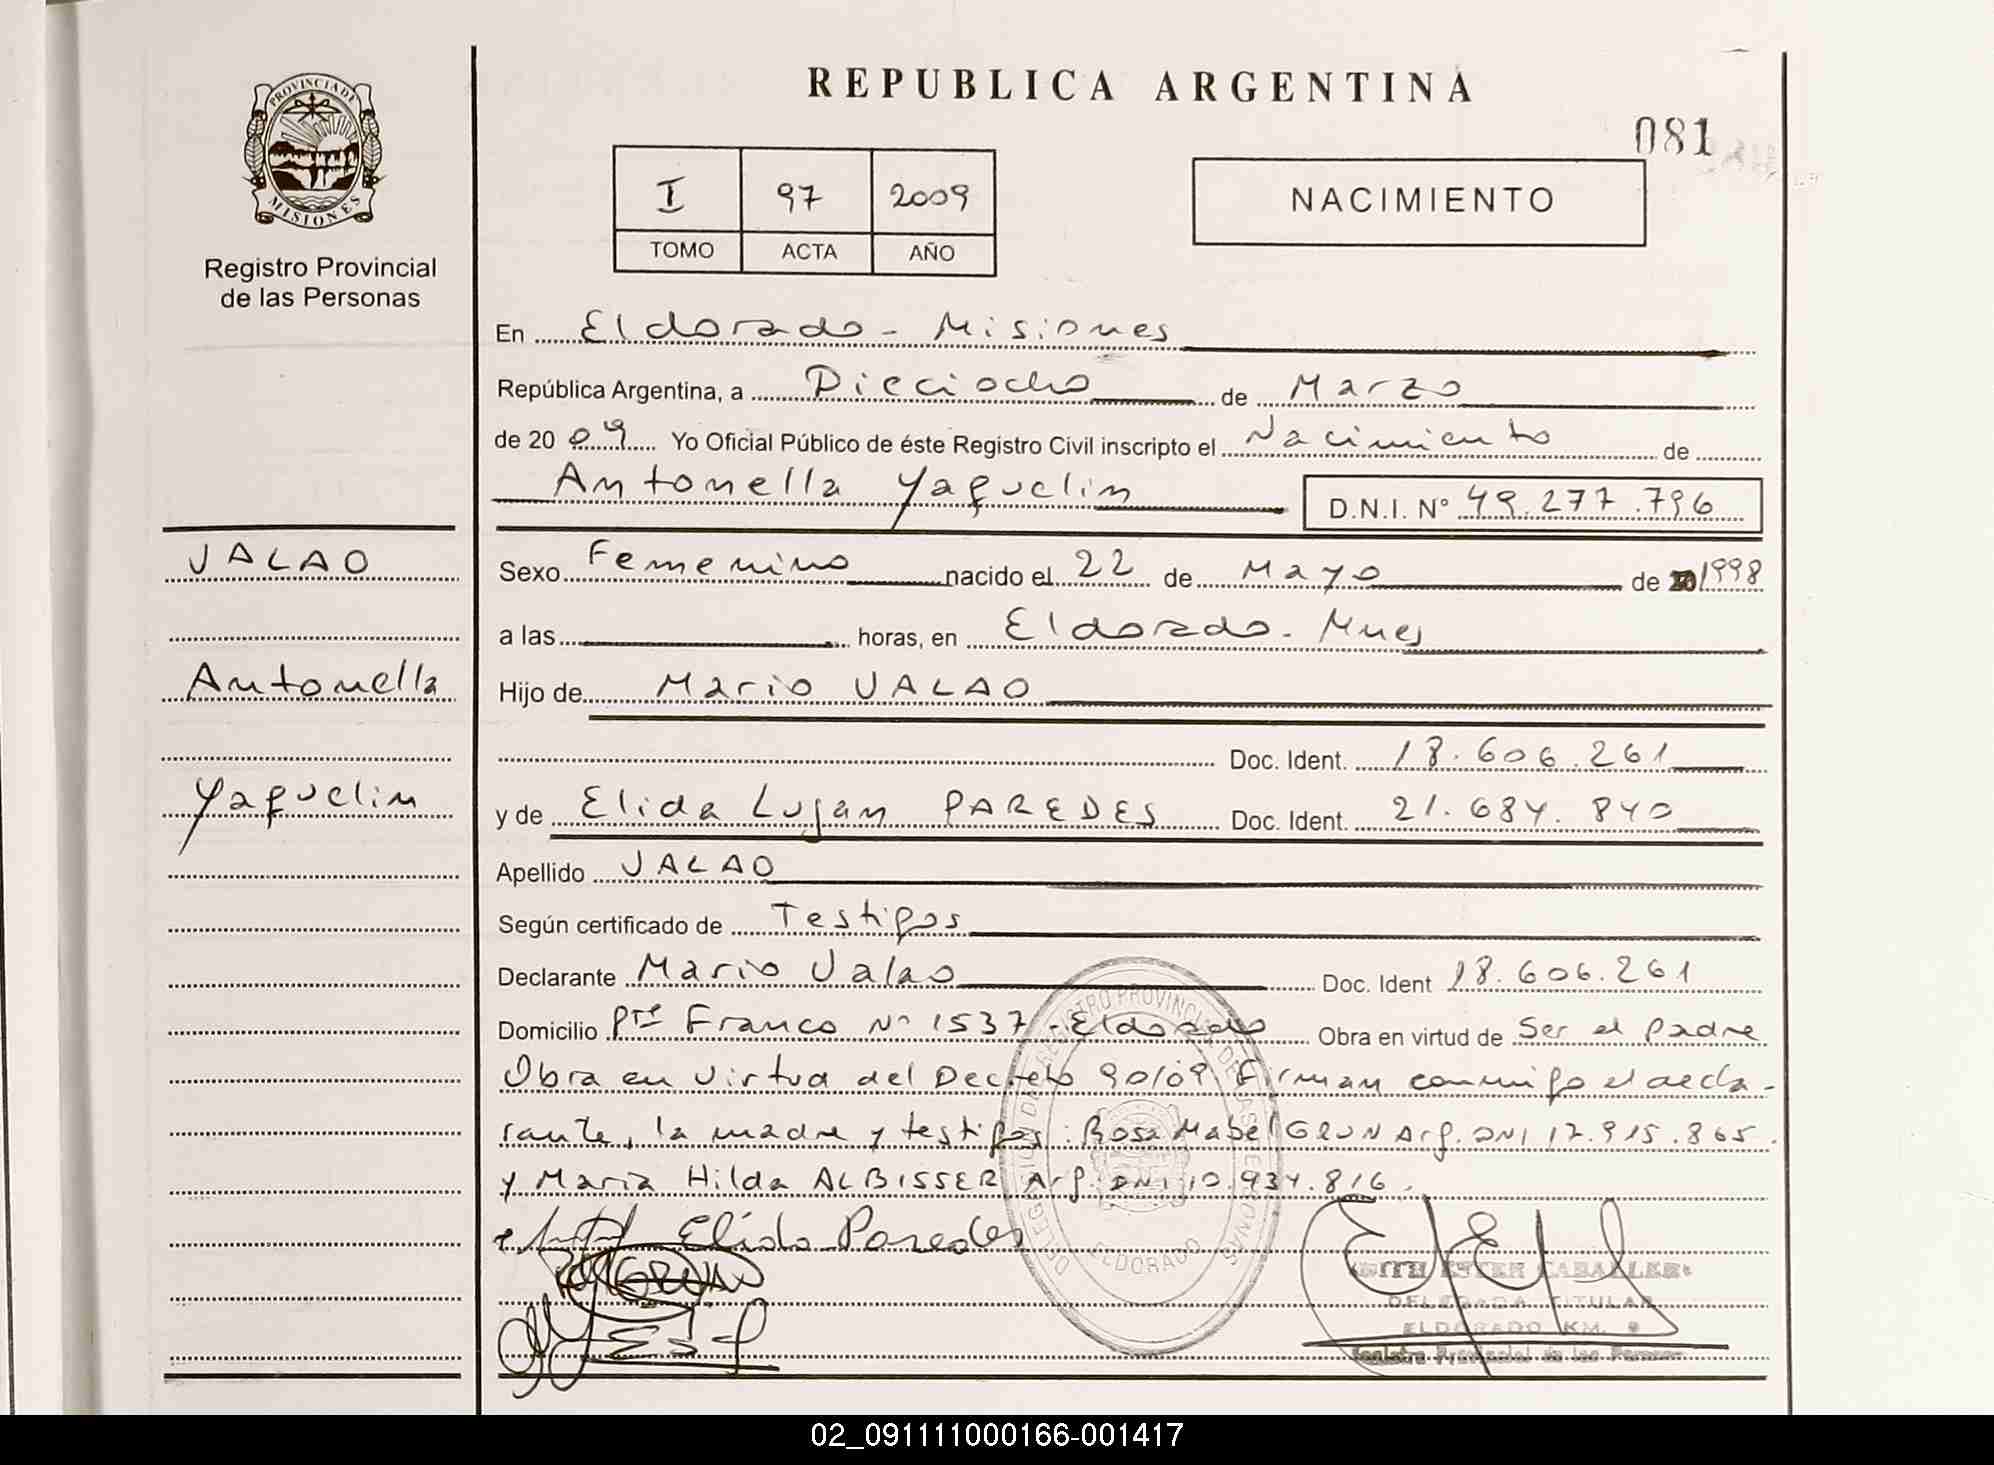 PROVINCIA DE
MISIONES
Registro Provincial
de las Personas
REPUBLICA ARGENTINA
081
I 97 2009
TOMO ACTA AÑO
NACIMIENTO
En Eldorado - Misiones
República Argentina, a Dieciocho de Marzo
de 20 09 Yo Oficial Público de éste Registro Civil inscripto el Nacimiento de
Antonella Yaquelin D.N.I. Nº 49.277.796
JALAO
Antonella
Yaquelin
Sexo Femenino nacido el 22 de Mayo de 1998
a las horas, en Eldorado - Mnes
Hijo de Mario JALAO
Doc. Ident. 18.606.261
y de Elida Lujan PAREDES Doc. Ident. 21.684.840
Apellido JALAO
Según certificado de Testigos
Declarante Mario Jalao Doc. Ident 18.606.261
Domicilio Pte Franco Nº 1537 - Eldorado Obra en virtud de Ser el padre
Obra en virtud del Decreto 90/09. Firman conmigo el decla-
rante, la madre y testigos: Rosa Mabel GRUN Arg. DNI 17.915.865.
y Maria Hilda ALBISSER Arg. DNI 10.934.816.
Elida Paredes
ELDORADO
EDITH ESTER CABALLERO
DELEGADA TITULAR
ELDORADO KM. 9
Registro Provincial de las Personas
02_091111000166-001417